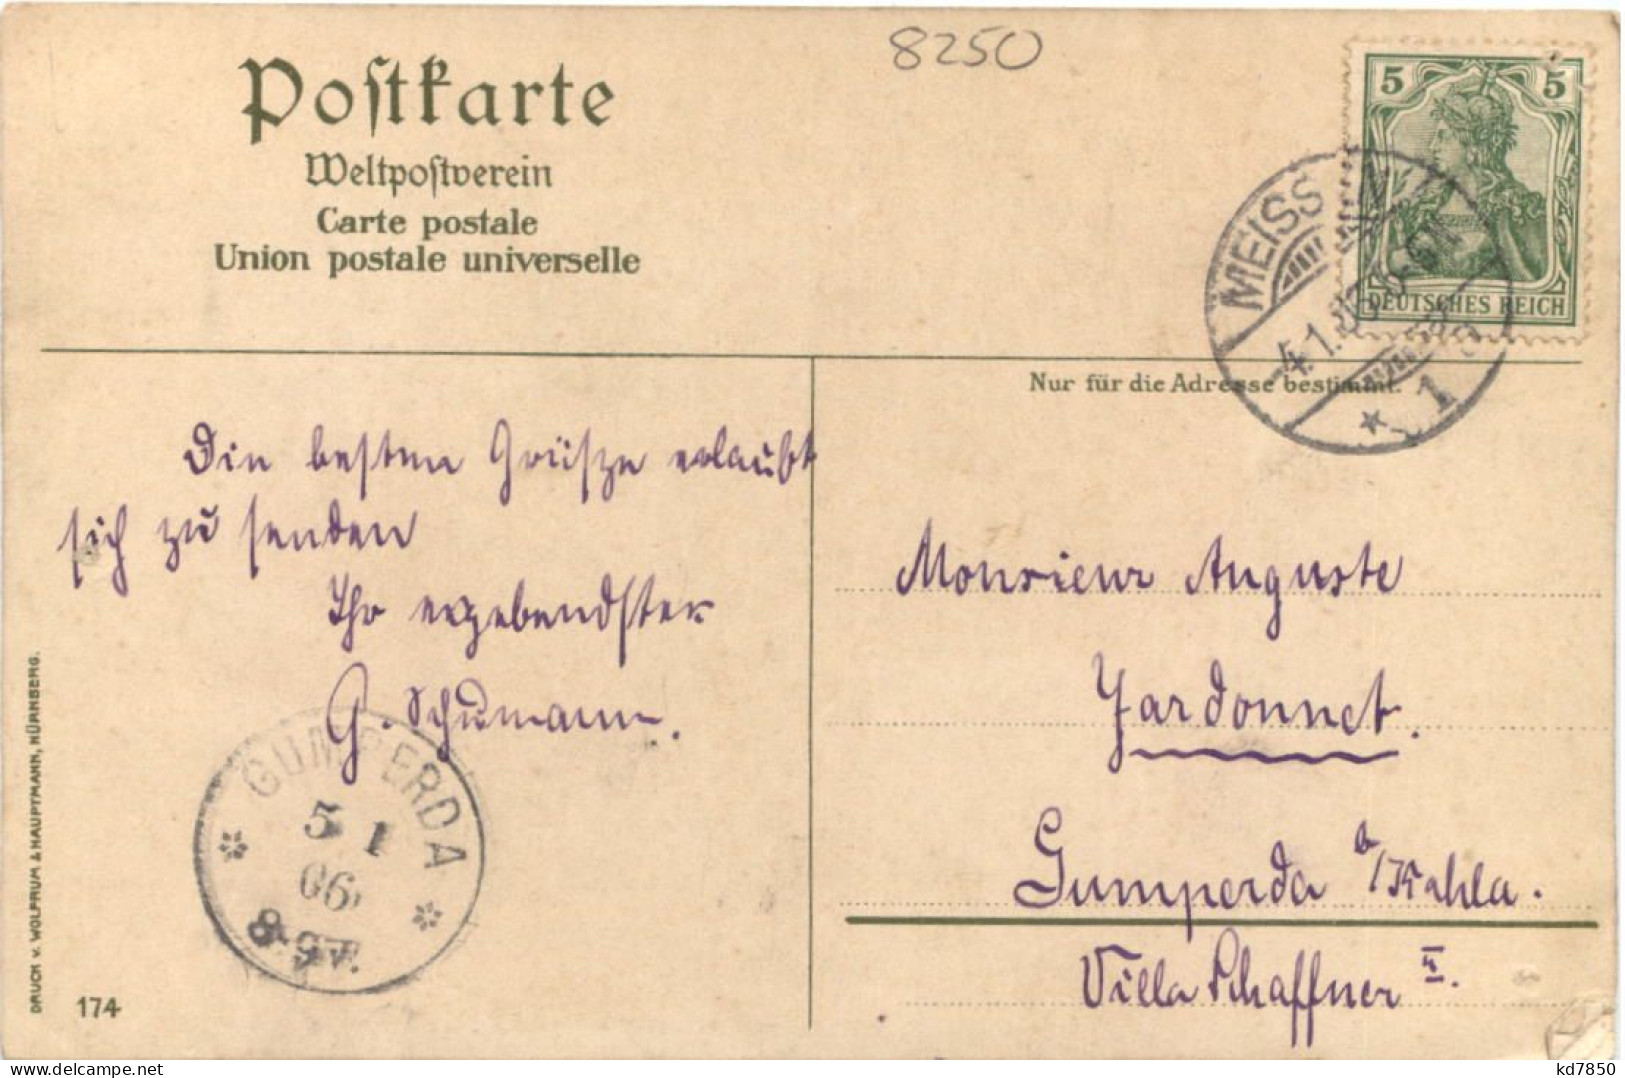 8250
Postkarte
Weltpostverein
Carte postale
Union postale universelle
5 5
DEUTSCHES REICH
MEISSEN
4.1.06
* 1
Nur für die Adresse bestimmt.
Die besten Grüsze erlaubt
sich zu senden
Ihr ergebendster
G. Schumann.
Monsieur Auguste
Jardonnet.
Gumperda b/Kahla.
Villa Schaffner II.
GUMPERDA
5 1
06
8-9V.
DRUCK v. WOLFRUM & HAUPTMANN, NÜRNBERG.
174
kd7850